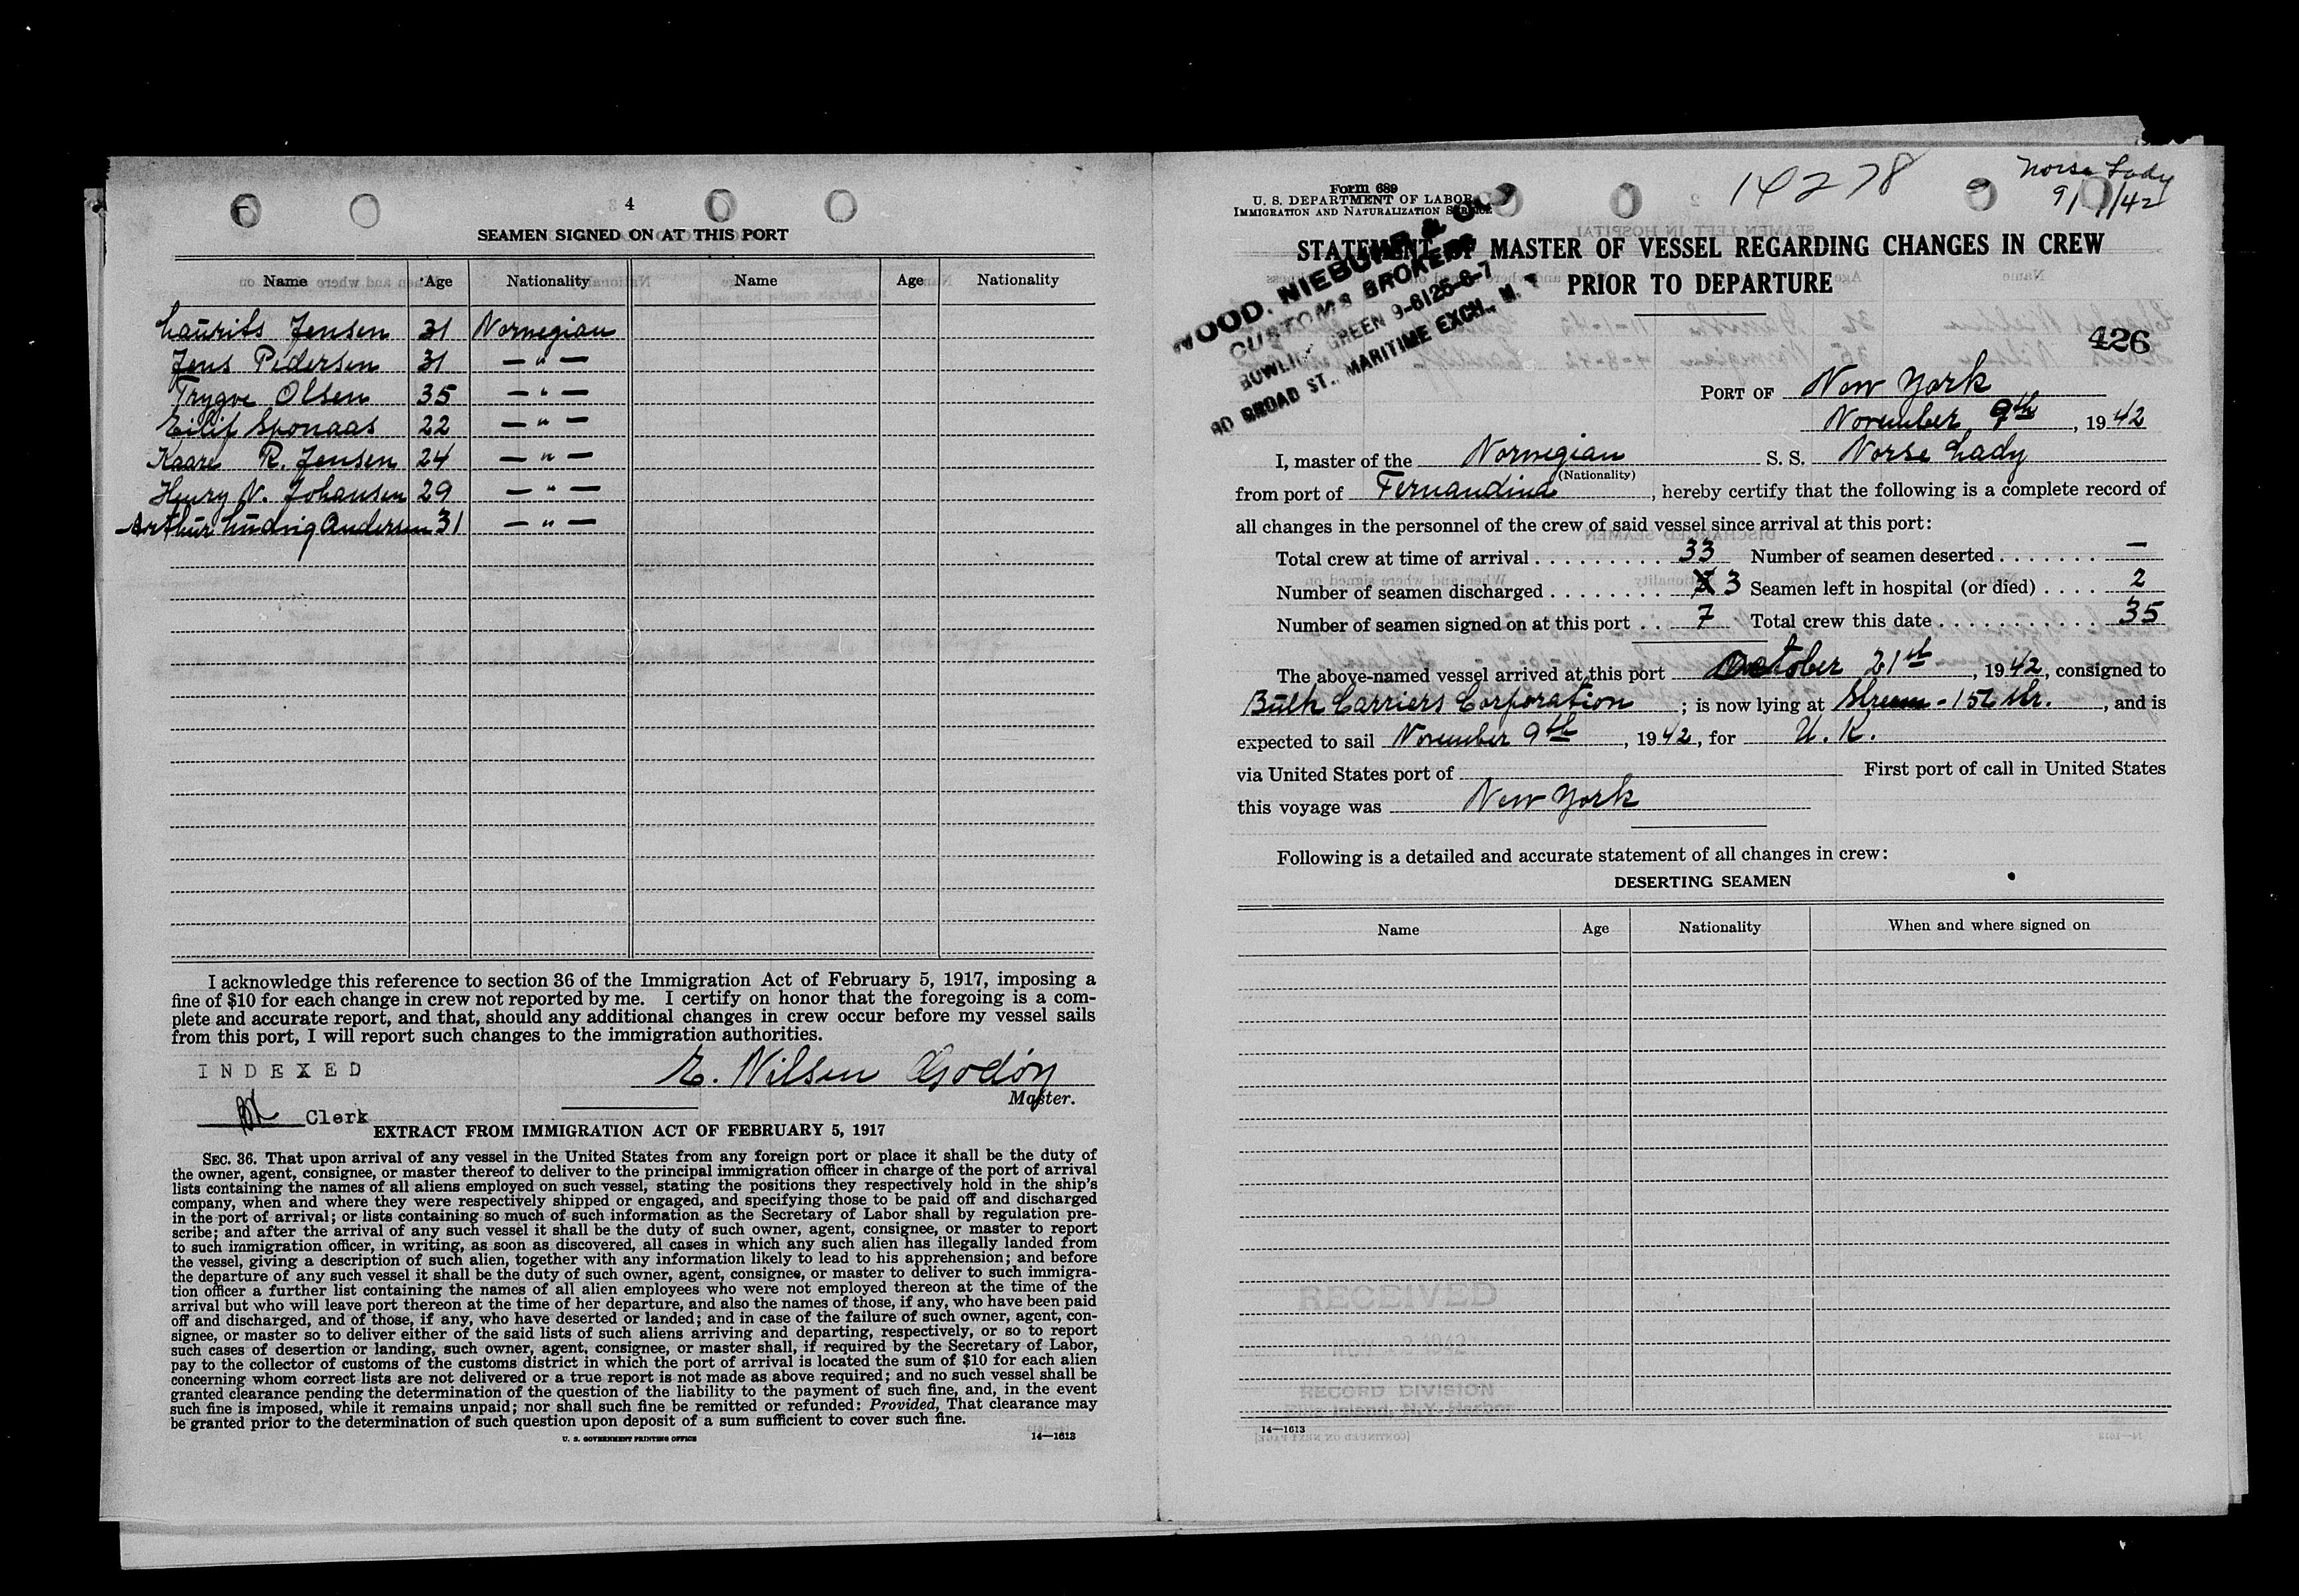 4
SEAMEN SIGNED ON AT THIS PORT
Name Age Nationality Name Age Nationality
Laurits Jensen 31 Norwegian
Jens Pedersen 31 — " —
Trygve Olsen 35 — " —
Eilif Sponaas 22 — " —
Kaare R. Jensen 24 — " —
Henry N. Johansen 29 — " —
Arthur Ludvig Andersen 31 — " —
I acknowledge this reference to section 36 of the Immigration Act of February 5, 1917, imposing a
fine of $10 for each change in crew not reported by me. I certify on honor that the foregoing is a com-
plete and accurate report, and that, should any additional changes in crew occur before my vessel sails
from this port, I will report such changes to the immigration authorities.
INDEXED
E. Nilsen Godöy
Master.
Clerk
EXTRACT FROM IMMIGRATION ACT OF FEBRUARY 5, 1917
SEC. 36. That upon arrival of any vessel in the United States from any foreign port or place it shall be the duty of
the owner, agent, consignee, or master thereof to deliver to the principal immigration officer in charge of the port of arrival
lists containing the names of all aliens employed on such vessel, stating the positions they respectively hold in the ship's
company, when and where they were respectively shipped or engaged, and specifying those to be paid off and discharged
in the port of arrival; or lists containing so much of such information as the Secretary of Labor shall by regulation pre-
scribe; and after the arrival of any such vessel it shall be the duty of such owner, agent, consignee, or master to report
to such immigration officer, in writing, as soon as discovered, all cases in which any such alien has illegally landed from
the vessel, giving a description of such alien, together with any information likely to lead to his apprehension; and before
the departure of any such vessel it shall be the duty of such owner, agent, consignee, or master to deliver to such immigra-
tion officer a further list containing the names of all alien employees who were not employed thereon at the time of the
arrival but who will leave port thereon at the time of her departure, and also the names of those, if any, who have been paid
off and discharged, and of those, if any, who have deserted or landed; and in case of the failure of such owner, agent, con-
signee, or master so to deliver either of the said lists of such aliens arriving and departing, respectively, or so to report
such cases of desertion or landing, such owner, agent, consignee, or master shall, if required by the Secretary of Labor,
pay to the collector of customs of the customs district in which the port of arrival is located the sum of $10 for each alien
concerning whom correct lists are not delivered or a true report is not made as above required; and no such vessel shall be
granted clearance pending the determination of the question of the liability to the payment of such fine, and, in the event
such fine is imposed, while it remains unpaid; nor shall such fine be remitted or refunded: Provided, That clearance may
be granted prior to the determination of such question upon deposit of a sum sufficient to cover such fine.
U. S. GOVERNMENT PRINTING OFFICE
14—1613
Form 689
U. S. DEPARTMENT OF LABOR
IMMIGRATION AND NATURALIZATION SERVICE
14278
Norse Lady
9/ /42
STATEMENT OF MASTER OF VESSEL REGARDING CHANGES IN CREW
PRIOR TO DEPARTURE
WOOD, NIEBUHR & CO.
CUSTOMS BROKERS
BOWLING GREEN 9-6125-6-7
80 BROAD ST., MARITIME EXCH., N. Y.
426
PORT OF New York
November 9th, 1942
I, master of the Norwegian S. S. Norse Lady
(Nationality)
from port of Fernandina, hereby certify that the following is a complete record of
all changes in the personnel of the crew of said vessel since arrival at this port:
Total crew at time of arrival 33 Number of seamen deserted —
Number of seamen discharged 3 Seamen left in hospital (or died) 2
Number of seamen signed on at this port 7 Total crew this date 35
The above-named vessel arrived at this port October 21st, 1942, consigned to
Bulk Carriers Corporation; is now lying at Stream - 156 Str., and is
expected to sail November 9th, 1942, for U. K.
via United States port of First port of call in United States
this voyage was New York
Following is a detailed and accurate statement of all changes in crew:
DESERTING SEAMEN
Name Age Nationality When and where signed on
RECEIVED
RECORD DIVISION
14—1613